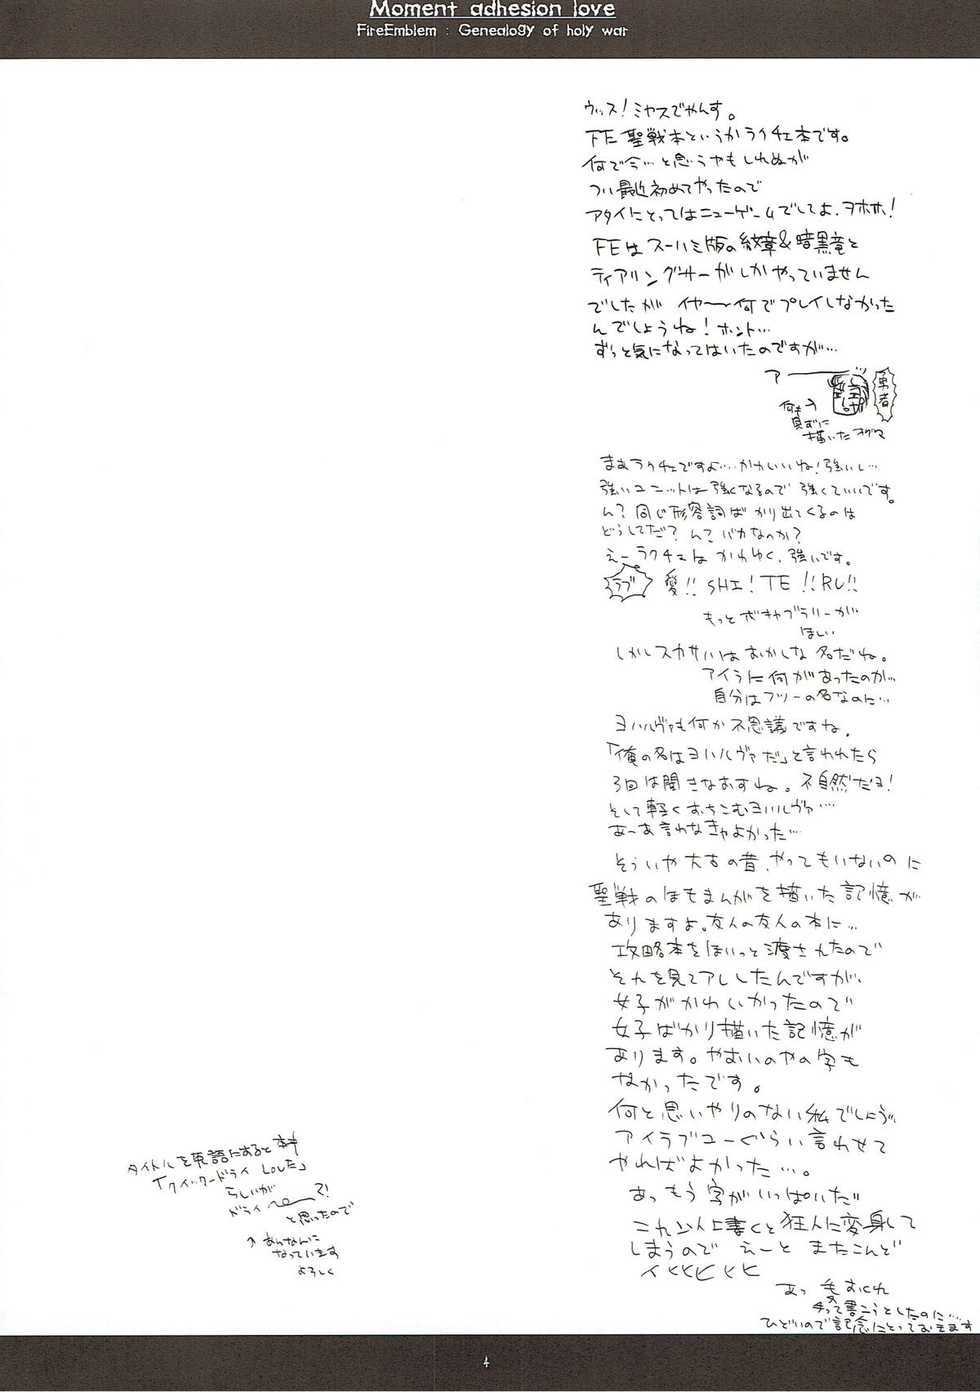 Moment adhesion love
FireEmblem : Genealogy of holy war
ウッス!ミヤスでやんす。
FE聖戦本というかラクチェ本です。
何で今…と思うやもしれぬが
つい最近初めてやったので
アタイにとってはニューゲームでしてよ、ヲホホ!
FEはスーハミ版の紋章&暗黒竜と
ティアリングサーがしかやっていません
でしたが イヤ〜何でプレイしなかった
んでしょうね!ホント…
ずっと気になってはいたのですが…
ア
勇者
何も
見ずに
描いたオグマ
まぁラクチェですよ…かわいいね!強いし…
強いユニットは強くなるので 強くていいです。
ん?同じ形容詞ばかり出てくるのは
どうしてだ? ん?バカなのか?
えーラクチェは かわゆく、強いです。
ラブ 愛!! SHI!TE!!RU!!
もっとボキャブラリーが
ほしい
しかしスカサハはおかしな名だね。
アイラに何があったのか…
自分はフツーの名なのに…
ヨハルヴァも何か不思議ですね。
「俺の名はヨハルヴァだ」と言われたら
3回は聞きなおすね。不自然だヨ!
そして軽くおちこむヨハルヴァ…
あーあ言わなきゃよかった…
そういや大古の昔、やってもいないのに
聖戦のほもまんがを描いた記憶が
ありますよ。友人の友人の本に…
攻略本をほいっと渡されたので
それを見てアレしたんですが、
女子がかわいかったので
女子ばかり描いた記憶が
あります。やおいのやの字も
なかったです。
何と思いやりのない私でしょう。
アイラブユーぐらい言わせて
やればよかった…。
あっもう字がいっぱいだ
これ以上書くと狂人に変身して
しまうので えーと またこんど
イヒヒヒヒヒ
あっ 毛おくれ
って書こうとしたのに…
ひどいので記念にとっておきます
タイトルを英語にあると
「クイックードライ Loveだ」
らしいが
ドライ〜?!
と思ったので
↑あんなんに
なっています
よろしく
4